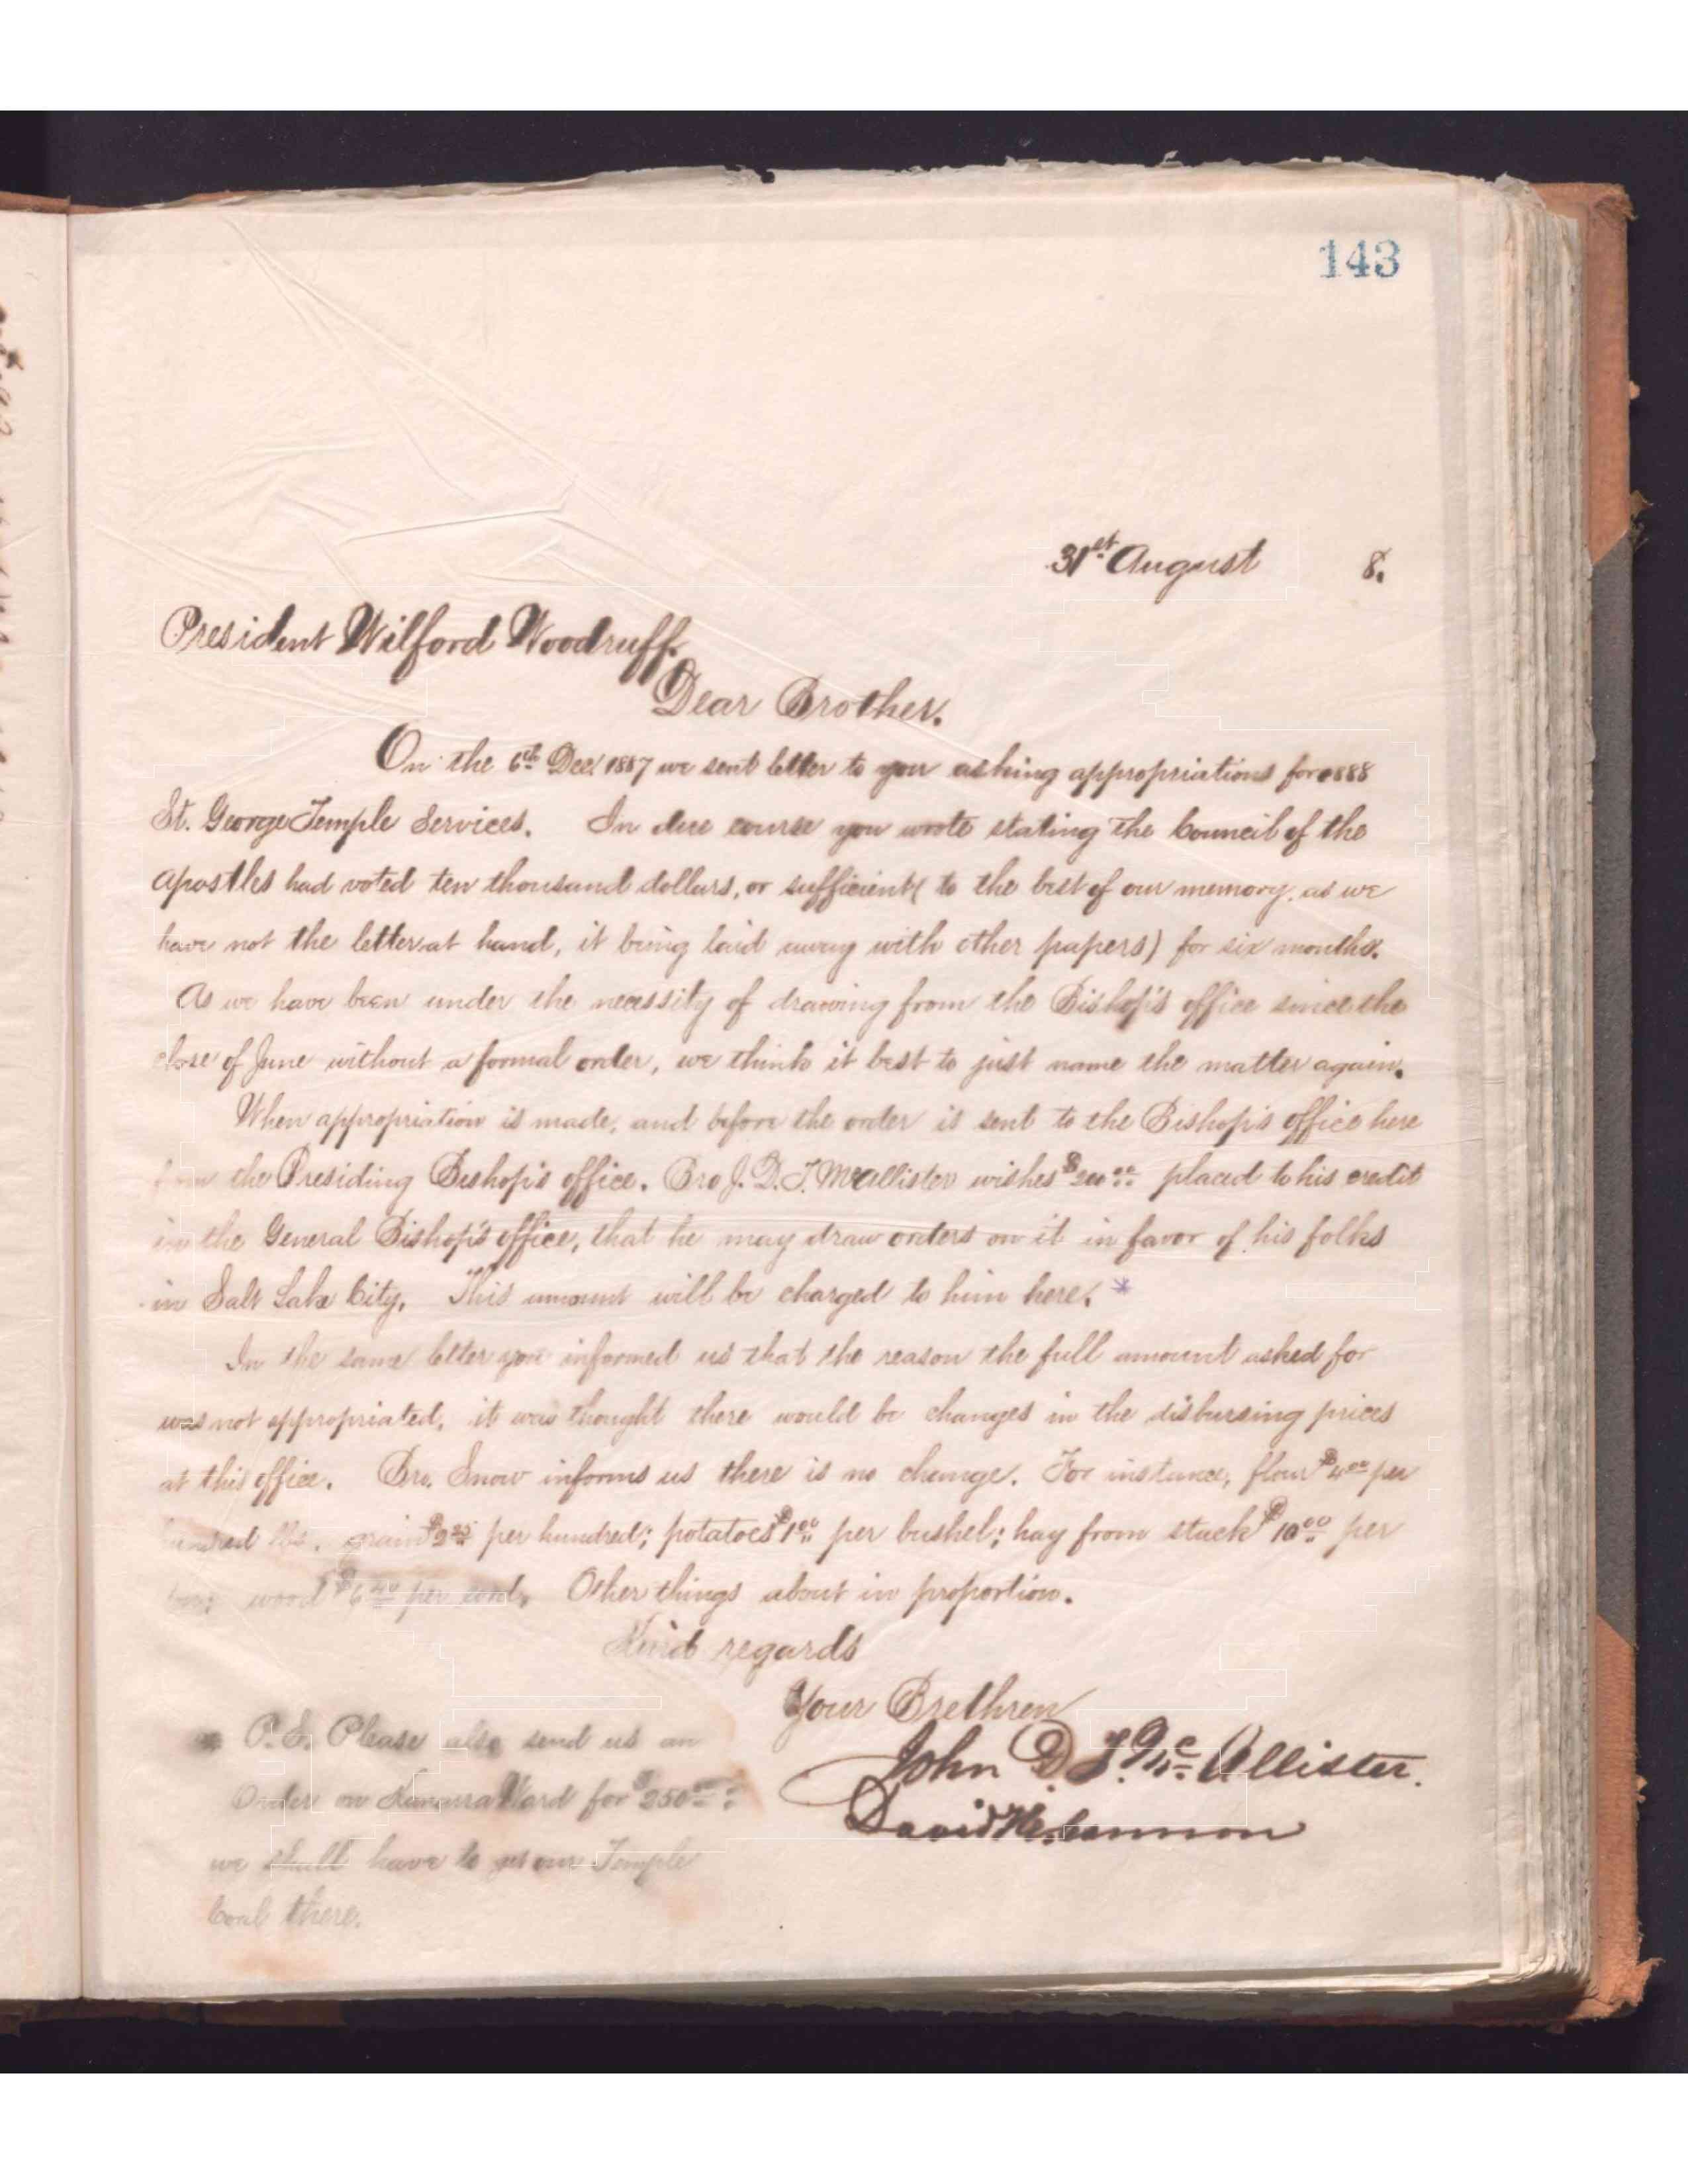 143
31st August 8.
President Wilford Woodruff.
Dear Brother.
On the 6th Dec. 1887 we sent letter to you asking appropriations for 1888
St. George Temple Services. In due course you wrote stating the Council of the
Apostles had voted ten thousand dollars, or sufficient (to the best of our memory, as we
have not the letter at hand, it being laid away with other papers) for six months.
As we have been under the necessity of drawing from the Bishop's office since the
close of June without a formal order, we think it best to just name the matter again.
When appropriation is made, and before the order is sent to the Bishop's office here
from the Presiding Bishop's office. Bro J. D. T. McAllister wishes $200 00 placed to his credit
in the General Bishop's office, that he may draw orders on it in favor of his folks
in Salt Lake City. This amount will be charged to him here. *
In the same letter you informed us that the reason the full amount asked for
was not appropriated, it was thought there would be changes in the disbursing prices
at this office. Bro. Snow informs us there is no change. For instance, flour $4 00 per
hundred lbs. grain per hundred; potatoes $1 00 per bushel; hay from stack $10 00 per
ton; wood per cord. Other things about in proportion.
Kind regards
Your Brethren
John D. T. McAllister.
David H. Cannon
* P.S. Please also send us an
Order on Kanarra Ward for $250 00:
we shall have to get our Temple
Coal there.